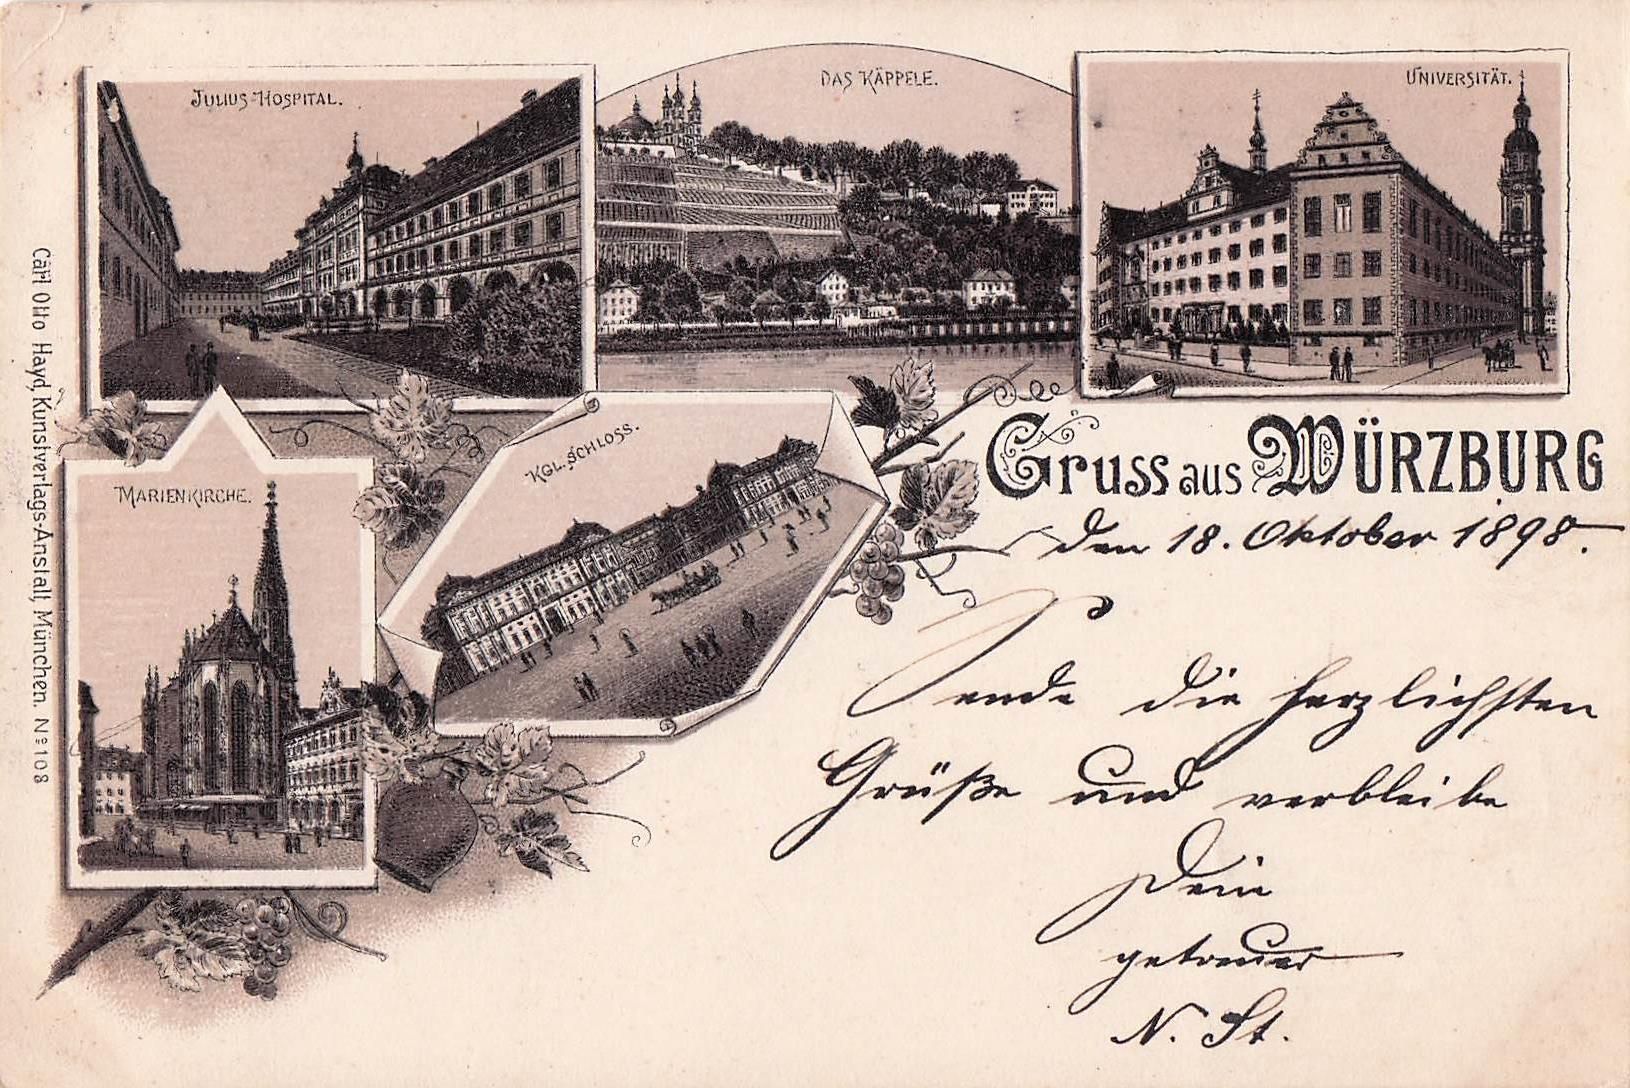 JULIUS-HOSPITAL.
DAS KÄPPELE.
UNIVERSITÄT.
MARIENKIRCHE.
KGL. SCHLOSS.
Gruss aus WÜRZBURG
den 18. Oktober 1898.
Sende die herzlichsten
Grüße und verbleibe
Dein
getreuer
N. St.
Carl Otto Hayd, Kunstverlags-Anstalt, München. Nº 108